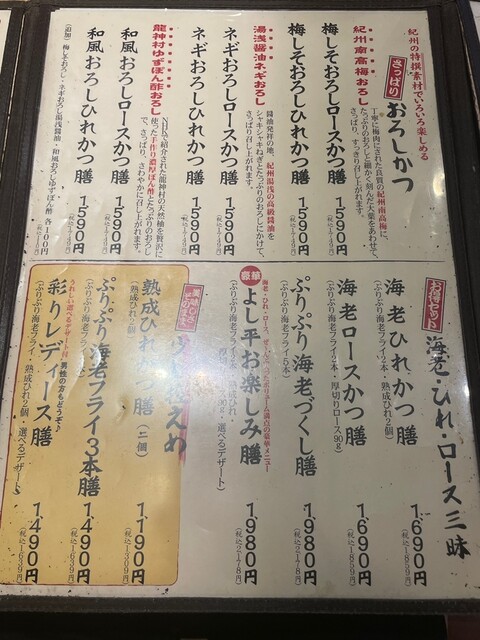 紀州の特撰素材でいろいろ楽しめる
さっぱり
おろしかつ
丁寧に梅肉にされた良質の紀州南高梅に、
たっぷりのおろしと細かく刻んだ大葉をあわせて、
さっぱり、すっきり召し上がれます。
紀州南高梅おろし
梅しそおろしロースかつ膳 1590円
梅しそおろしひれかつ膳 1590円
湯浅醤油ネギおろし
醤油発祥の地、紀州湯浅の高級醤油を
シャキシャキねぎとたっぷりのおろしにかけて、
さっぱり召し上がれます。
ネギおろしロースかつ膳 1590円
ネギおろしひれかつ膳 1590円
龍神村ゆずぽん酢おろし
NHKでも紹介された龍神村の天然油を贅沢に
使った手作り濃厚ぽん酢とたっぷりのおろし
で、さっぱり、さわやかに召し上がれます。
和風おろしロースかつ膳 1590円
和風おろしひれかつ膳 1590円
(追加) 梅しそおろし・ネギおろし湯浅醤油・和風おろしゆずぽん酢 各100円
お得セット
海老・ひれ・ロース三昧
海老ひれかつ膳 1690円
(ぷりぷり海老フライ2本・熟成ひれ2個) (税込1859円)
海老ロースかつ膳 1690円
(ぷりぷり海老フライ2本・厚切りロース90g) (税込1859円)
ぷりぷり海老づくし膳 1980円
(ぷりぷり海老フライ5本) (税込2178円)
豪華
よし平お楽しみ膳 1980円
(税込2178円)
熟成ひれかつ膳(二個) 1190円
(熟成ひれ2個) (税込1309円)
ぷりぷり海老フライ3本膳 1490円
(ぷりぷり海老フライ3本) (税込1639円)
うれしい選べるデザート付 男性の方もどうぞ♪
彩りレディース膳 1490円
(ぷりぷり海老フライ・熟成ひれ2個・選べるデザート) (税込1639円)